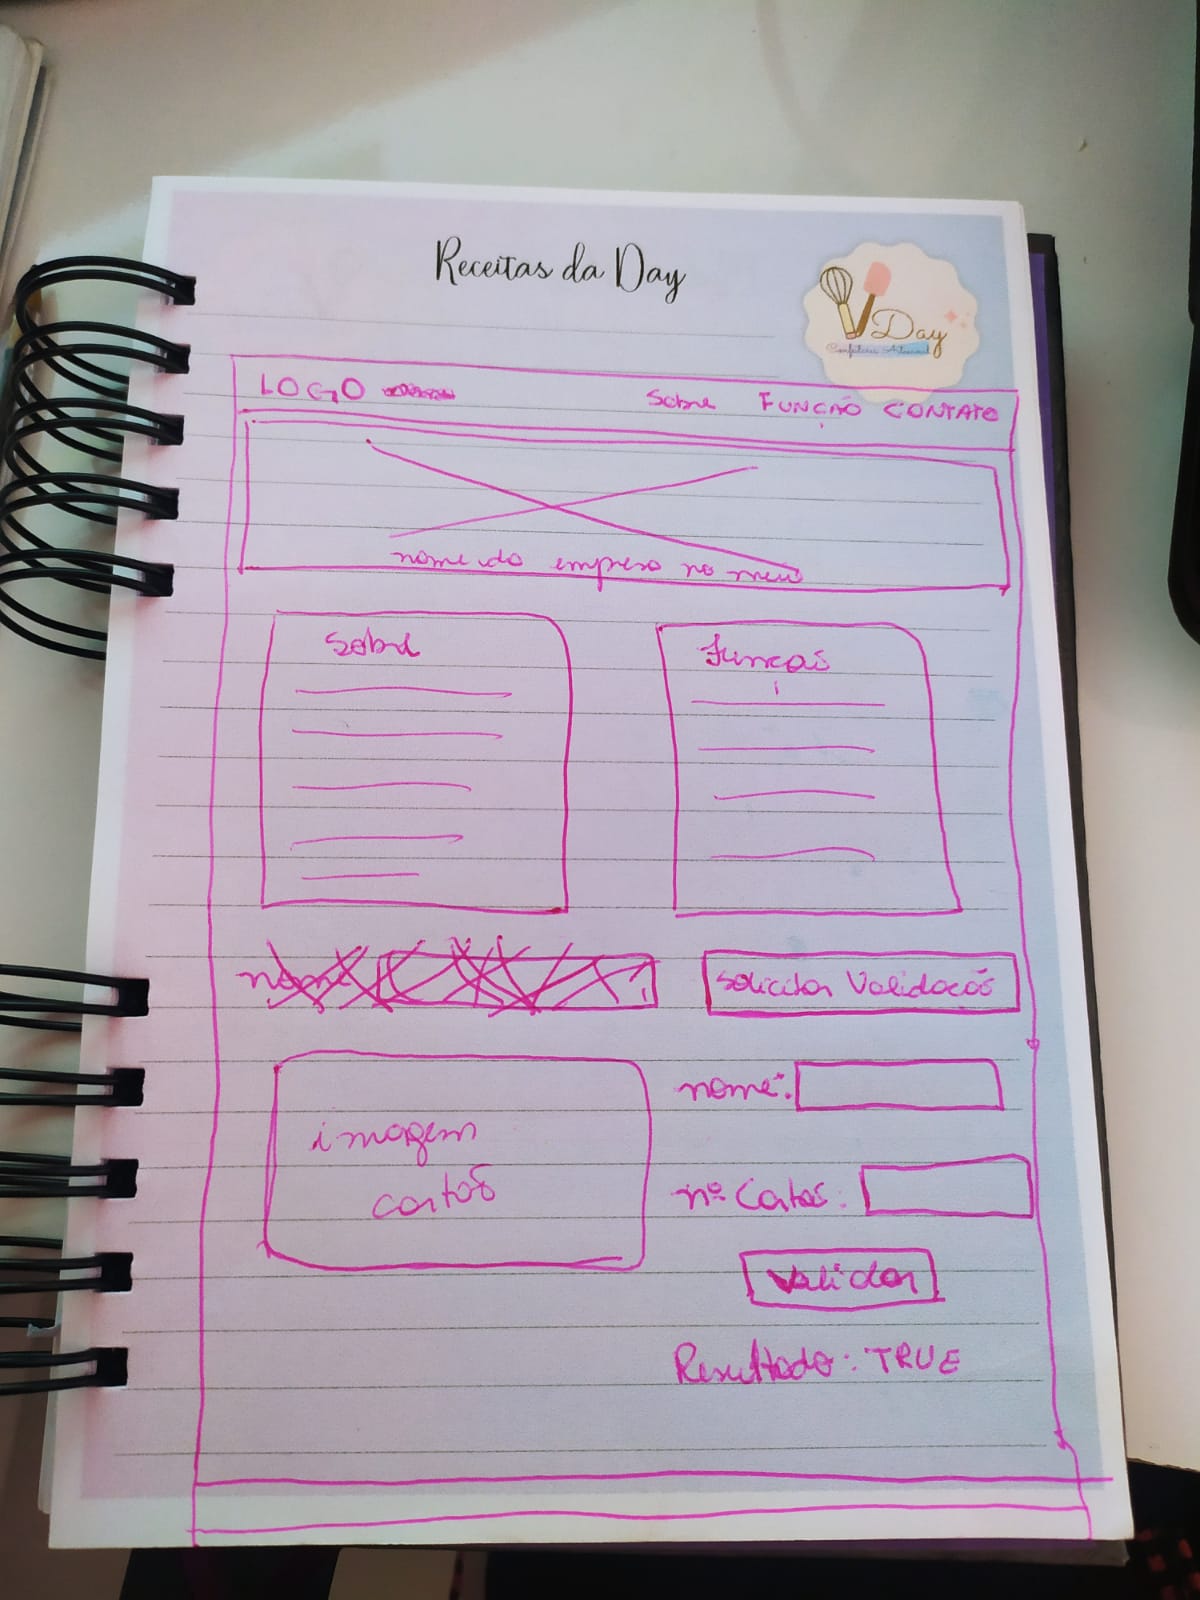 Receitas da Day
Day
Confeitaria Artesanal
LOGO
Sobre FUNÇÃO CONTATO
nome da empresa no meio
Sobre
Função
nome
Solicitar Validação
imagem
cartão
nome:
nº Cartão:
Validar
Resultado: TRUE